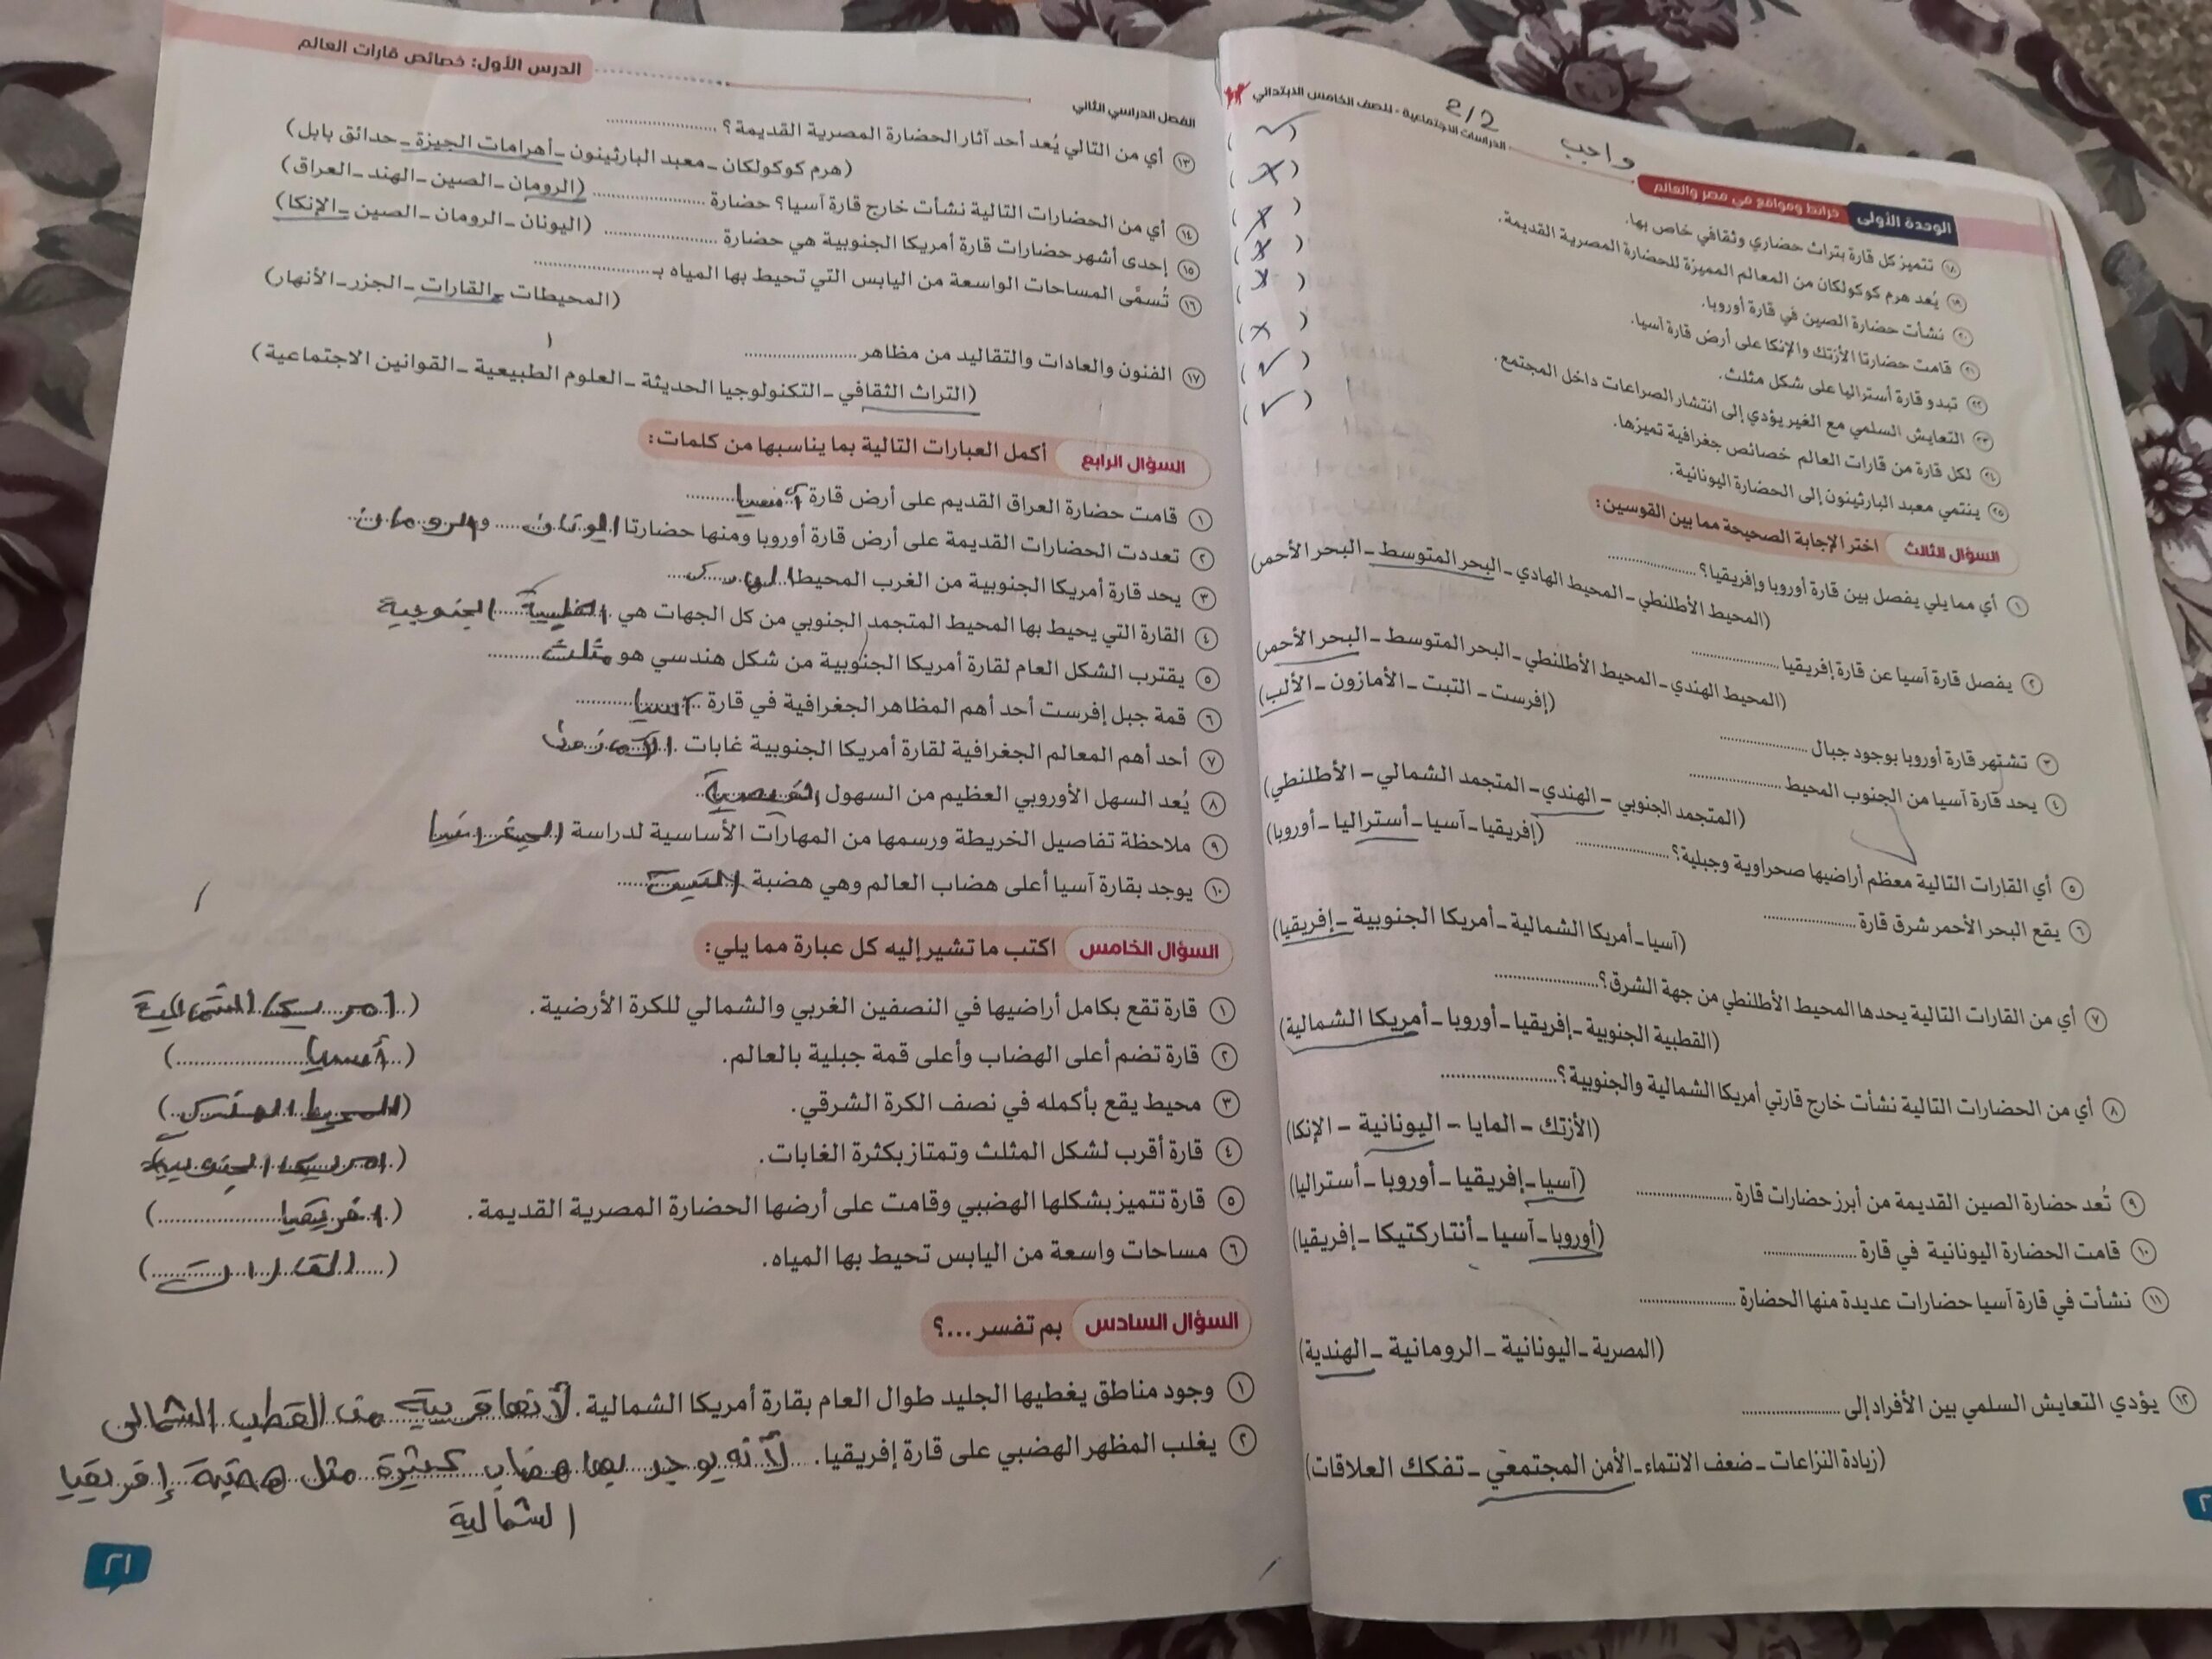 الدراسات الاجتماعية - للصف الخامس الابتدائي
2/2
واجب
الوحدة الأولى خرائط ومواقع في مصر والعالم
١٨ تتميز كل قارة بتراث حضاري وثقافي خاص بها. (✓)
١٩ يُعد هرم كوكولكان من المعالم المميزة للحضارة المصرية القديمة. (x)
٢٠ نشأت حضارة الصين في قارة أوروبا. (x)
٢١ قامت حضارتا الأزتك والإنكا على أرض قارة آسيا. (x)
٢٢ تبدو قارة أستراليا على شكل مثلث. (x)
٢٣ التعايش السلمي مع الغير يؤدي إلى انتشار الصراعات داخل المجتمع. (x)
٢٤ لكل قارة من قارات العالم خصائص جغرافية تميزها. (✓)
٢٥ ينتمي معبد البارثينون إلى الحضارة اليونانية. (✓)
السؤال الثالث اختر الإجابة الصحيحة مما بين القوسين:
١ أي مما يلي يفصل بين قارة أوروبا وإفريقيا؟ ....................
(المحيط الأطلنطي - المحيط الهادي - البحر المتوسط - البحر الأحمر)
٢ يفصل قارة آسيا عن قارة إفريقيا ....................
(المحيط الهندي - المحيط الأطلنطي - البحر المتوسط - البحر الأحمر)
٣ تشتهر قارة أوروبا بوجود جبال ....................
(إفرست - التبت - الأمازون - الألب)
٤ يحد قارة آسيا من الجنوب المحيط ....................
(المتجمد الجنوبي - الهندي - المتجمد الشمالي - الأطلنطي)
٥ أي القارات التالية معظم أراضيها صحراوية وجبلية؟ ....................
(إفريقيا - آسيا - أستراليا - أوروبا)
٦ يقع البحر الأحمر شرق قارة ....................
(آسيا - أمريكا الشمالية - أمريكا الجنوبية - إفريقيا)
٧ أي من القارات التالية يحدها المحيط الأطلنطي من جهة الشرق؟ ....................
(القطبية الجنوبية - إفريقيا - أوروبا - أمريكا الشمالية)
٨ أي من الحضارات التالية نشأت خارج قارتي أمريكا الشمالية والجنوبية؟ ....................
(الأزتك - المايا - اليونانية - الإنكا)
٩ تُعد حضارة الصين القديمة من أبرز حضارات قارة ....................
(آسيا - إفريقيا - أوروبا - أستراليا)
١٠ قامت الحضارة اليونانية في قارة ....................
(أوروبا - آسيا - أنتاركتيكا - إفريقيا)
١١ نشأت في قارة آسيا حضارات عديدة منها الحضارة ....................
(المصرية - اليونانية - الرومانية - الهندية)
١٢ يؤدي التعايش السلمي بين الأفراد إلى ....................
(زيادة النزاعات - ضعف الانتماء - الأمن المجتمعي - تفكك العلاقات)
الفصل الدراسي الثاني
الدرس الأول: خصائص قارات العالم
١٣ أي من التالي يُعد أحد آثار الحضارة المصرية القديمة؟ ....................
(هرم كوكولكان - معبد البارثينون - أهرامات الجيزة - حدائق بابل)
١٤ أي من الحضارات التالية نشأت خارج قارة آسيا؟ حضارة .................... (الرومان - الصين - الهند - العراق)
١٥ إحدى أشهر حضارات قارة أمريكا الجنوبية هي حضارة .................... (اليونان - الرومان - الصين - الإنكا)
١٦ تُسمَّى المساحات الواسعة من اليابس التي تحيط بها المياه بـ ....................
(المحيطات - القارات - الجزر - الأنهار)
١٧ الفنون والعادات والتقاليد من مظاهر ....................
(التراث الثقافي - التكنولوجيا الحديثة - العلوم الطبيعية - القوانين الاجتماعية)
السؤال الرابع أكمل العبارات التالية بما يناسبها من كلمات:
١ قامت حضارة العراق القديم على أرض قارة آسيا
٢ تعددت الحضارات القديمة على أرض قارة أوروبا ومنها حضارتا اليونان و الرومان
٣ يحد قارة أمريكا الجنوبية من الغرب المحيط
٤ القارة التي يحيط بها المحيط المتجمد الجنوبي من كل الجهات هي القطبية الجنوبية
٥ يقترب الشكل العام لقارة أمريكا الجنوبية من شكل هندسي هو مثلث
٦ قمة جبل إفرست أحد أهم المظاهر الجغرافية في قارة آسيا
٧ أحد أهم المعالم الجغرافية لقارة أمريكا الجنوبية غابات الأمازون
٨ يُعد السهل الأوروبي العظيم من السهول
٩ ملاحظة تفاصيل الخريطة ورسمها من المهارات الأساسية لدراسة الجغرافيا
١٠ يوجد بقارة آسيا أعلى هضاب العالم وهي هضبة التبت
السؤال الخامس اكتب ما تشير إليه كل عبارة مما يلي:
١ قارة تقع بكامل أراضيها في النصفين الغربي والشمالي للكرة الأرضية. (أمريكا الشمالية)
٢ قارة تضم أعلى الهضاب وأعلى قمة جبلية بالعالم. (آسيا)
٣ محيط يقع بأكمله في نصف الكرة الشرقي. (المحيط الهندي)
٤ قارة أقرب لشكل المثلث وتمتاز بكثرة الغابات. (امريكا الجنوبية)
٥ قارة تتميز بشكلها الهضبي وقامت على أرضها الحضارة المصرية القديمة. (افريقيا)
٦ مساحات واسعة من اليابس تحيط بها المياه. (القارات)
السؤال السادس بم تفسر ...؟
١ وجود مناطق يغطيها الجليد طوال العام بقارة أمريكا الشمالية. لأنها قريبة من القطب الشمالى
٢ يغلب المظهر الهضبي على قارة إفريقيا. لأنه يوجد بها هضاب كثيرة مثل هضبة إفريقيا
الشمالية
٢١